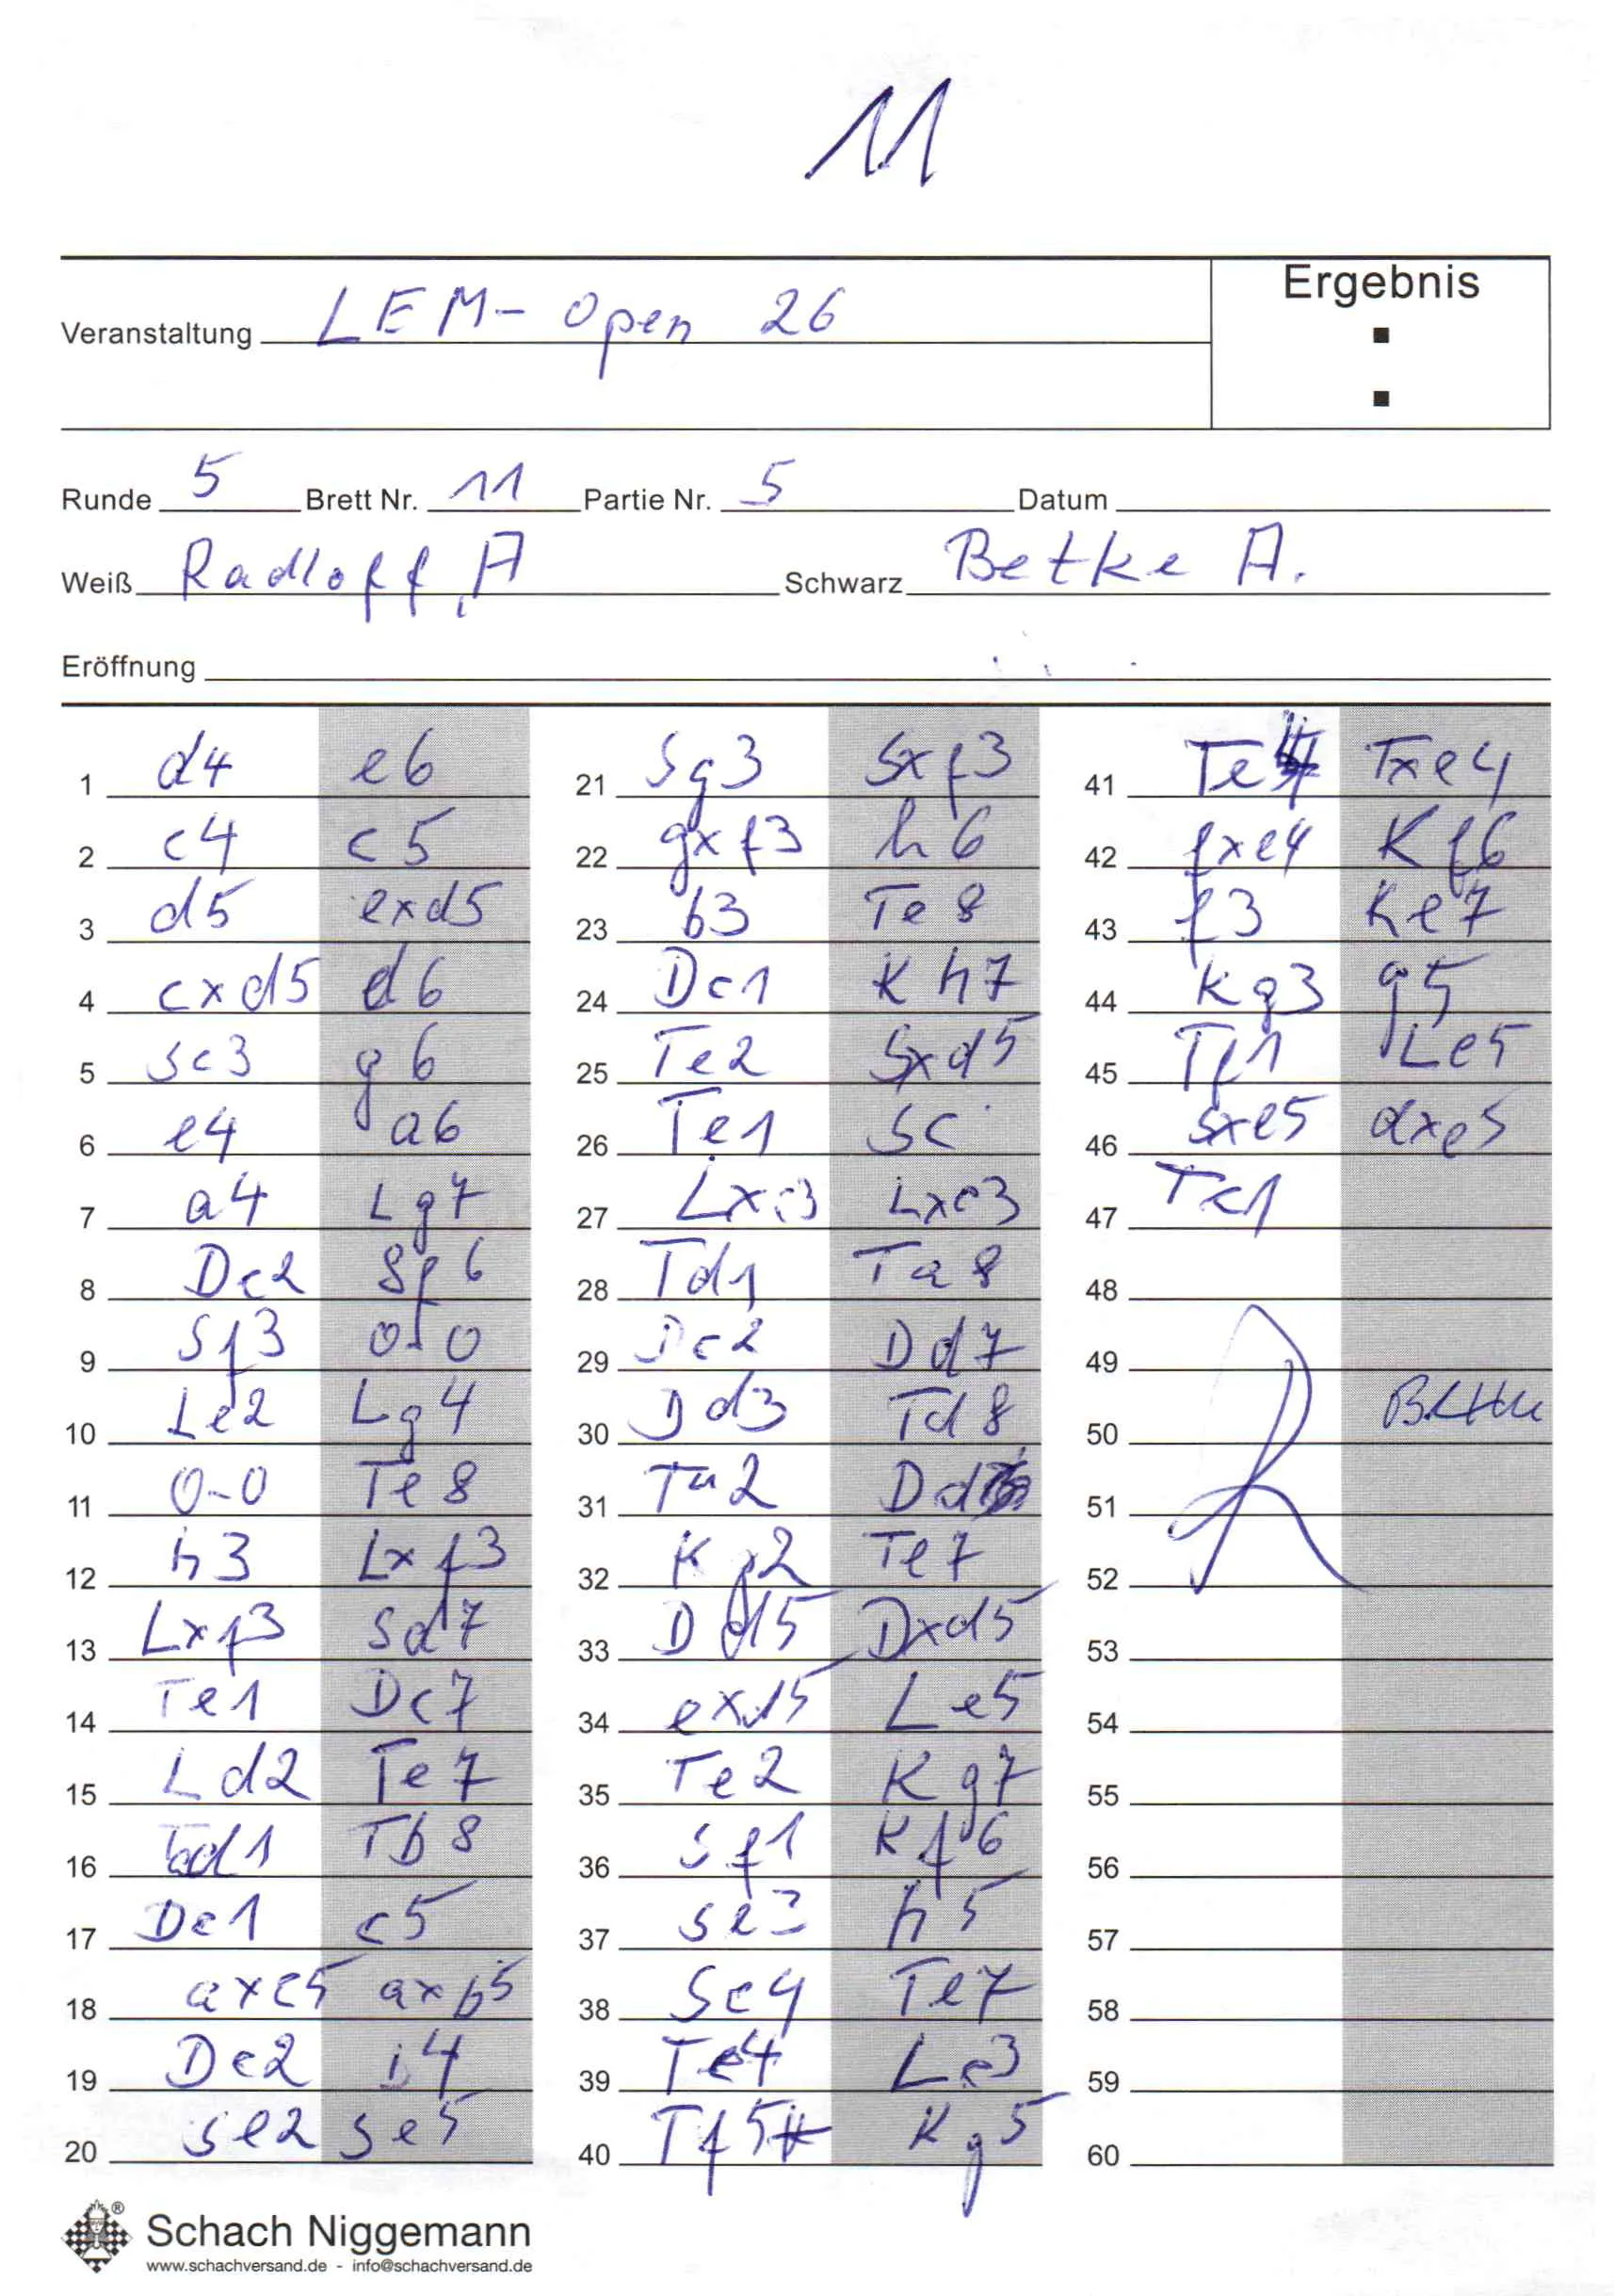 11
Ergebnis
Veranstaltung LEM-Open 26
Runde 5 Brett Nr. 11 Partie Nr. 5 Datum
Weiß Radloff, A Schwarz Betke A.
Eröffnung
1 d4 e6
2 c4 c5
3 d5 exd5
4 cxd5 d6
5 Sc3 g6
6 e4 a6
7 a4 Lg7
8 Dc2 Sf6
9 Sf3 0-0
10 Le2 Lg4
11 0-0 Te8
12 h3 Lxf3
13 Lxf3 Sd7
14 Te1 Dc7
15 Ld2 Te7
16 Tad1 Tb8
17 Dc1 c5
18 axc5 axb5
19 Dc2 b4
20 Se2 Se5
21 Sg3 Sxf3
22 gxf3 h6
23 b3 Te8
24 Dc1 Kh7
25 Te2 Sxd5
26 Te1 Sc
27 Lxc3 Lxc3
28 Td1 Ta8
29 Dc2 Dd7
30 Dd3 Td8
31 Ta2 Dd
32 Kg2 Te7
33 Dd5 Dxd5
34 exd5 Le5
35 Te2 Kg7
36 Sf1 Kf6
37 Se3 h5
38 Sc4 Te7
39 Te4 Lc3
40 Tf5 Kg5
41 Te4 Txe4
42 fxe4 Kf6
43 f3 Ke7
44 Kg3 g5
45 Tf1 Le5
46 Sxe5 dxe5
47 Tc1
48
49
50
51
52
53
54
55
56
57
58
59
60
Schach Niggemann
www.schachversand.de - info@schachversand.de